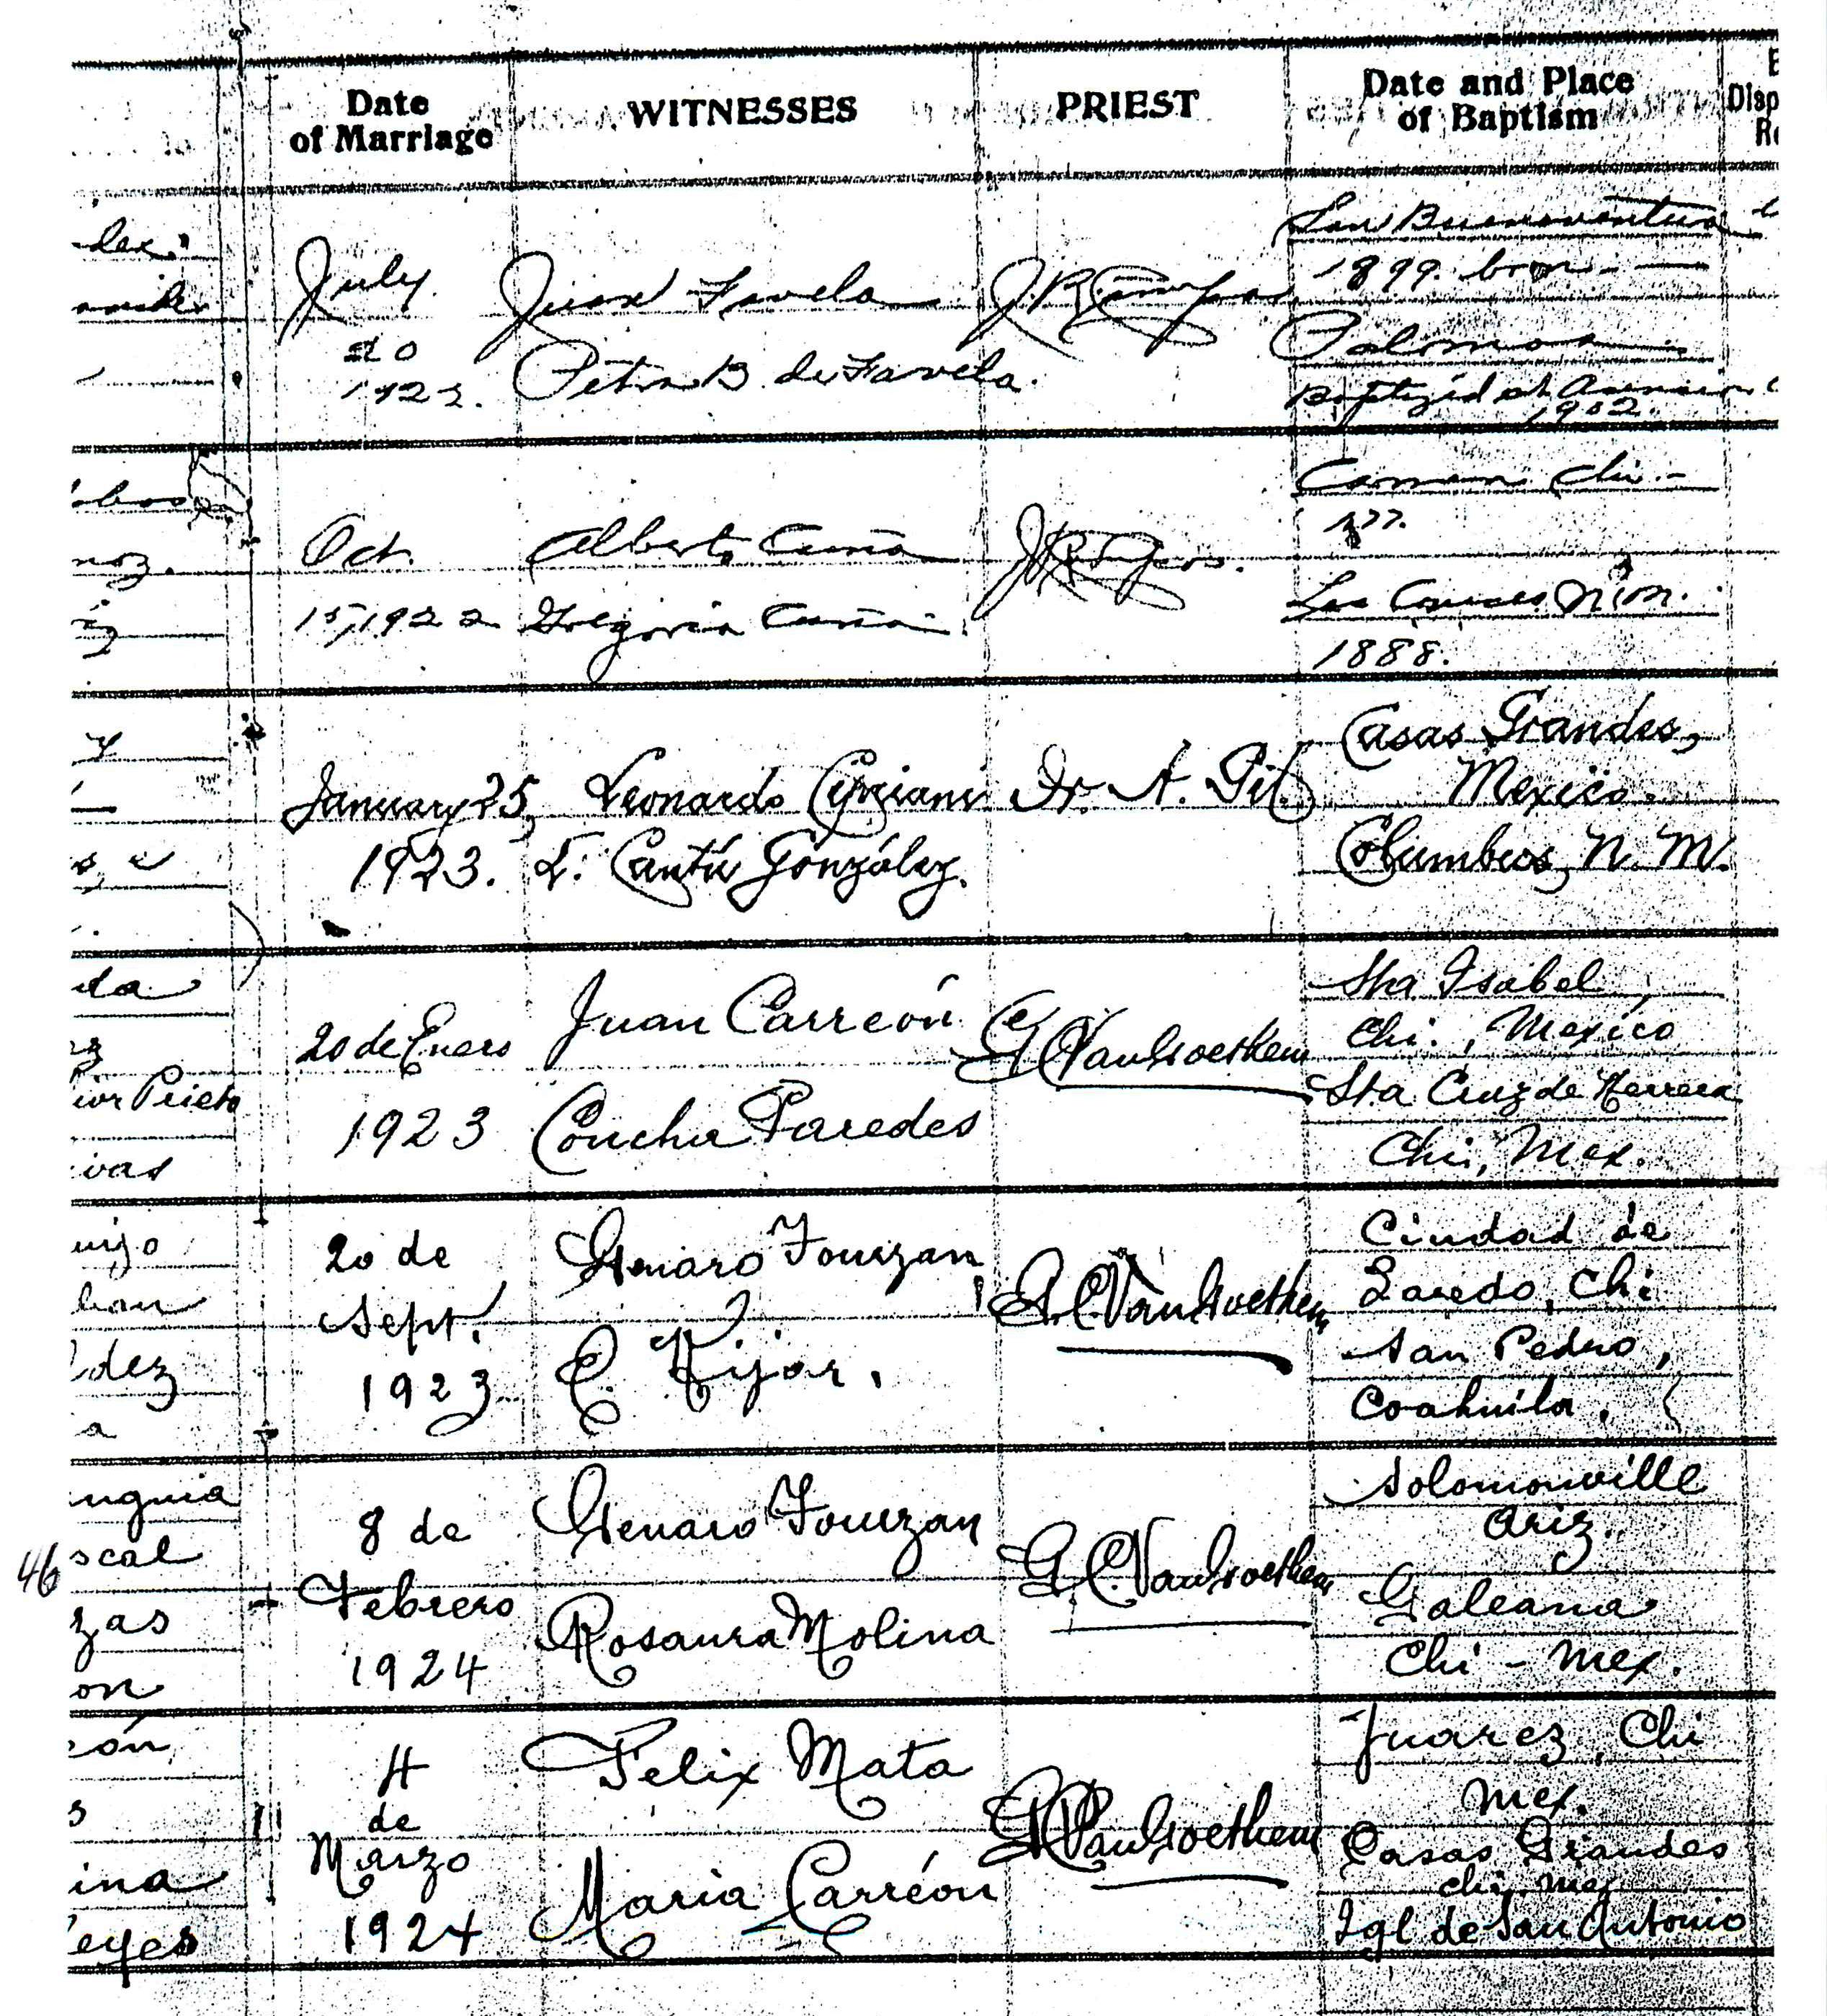 Date
of Marriage
WITNESSES
PRIEST
Date and Place
of Baptism
E
Disp
Re
dez
July
20
1922.
Juan Favela
Petra B. de Favela.
San Buenaventura
1899. born
Palomas
Baptized at Ascension
1902.
noz.
Oct.
15, 1922
Alberto
Gregoria
Chi.
1877.
Las Cruces N.M.
1888.
y
January 25,
1923.
Leonardo Cipriani
L. Cantú González.
Fr. A. Gil
Casas Grandes,
Mexico.
Columbus, N. M.
da
ez
ior Prieto
ivas
20 de Enero
1923
Juan Carreón
Concha Paredes
G.C. Van Goethem
Sta Isabel,
Chi., Mexico
Sta Cruz de Herrera
Chi, Mex.
uijo
ban
dez
a
20 de
Sept.
1923
Genaro Fourzan
C. Kijar.
G. C. Van Goethem
Ciudad de
Laredo, Chi
San Pedro,
Coahuila.
46
unguia
scal
zas
on
8 de
Febrero
1924
Genaro Fourzan
Rosaura Molina
G. C. Van Goethem
Solomonville
Ariz.
Galeana
Chi - Mex.
eón
s
ina
eyes
4
de
Marzo
1924
Felix Mata
Maria Carreón
G.C. Van Goethem
Juarez, Chi
Mex.
Casas Grandes
Chi, Mex
Igl de San Antonio